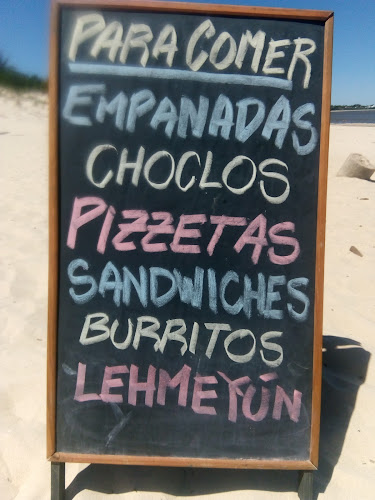 PARA COMER
EMPANADAS
CHOCLOS
PIZZETAS
SANDWICHES
BURRITOS
LEHMEYÚN